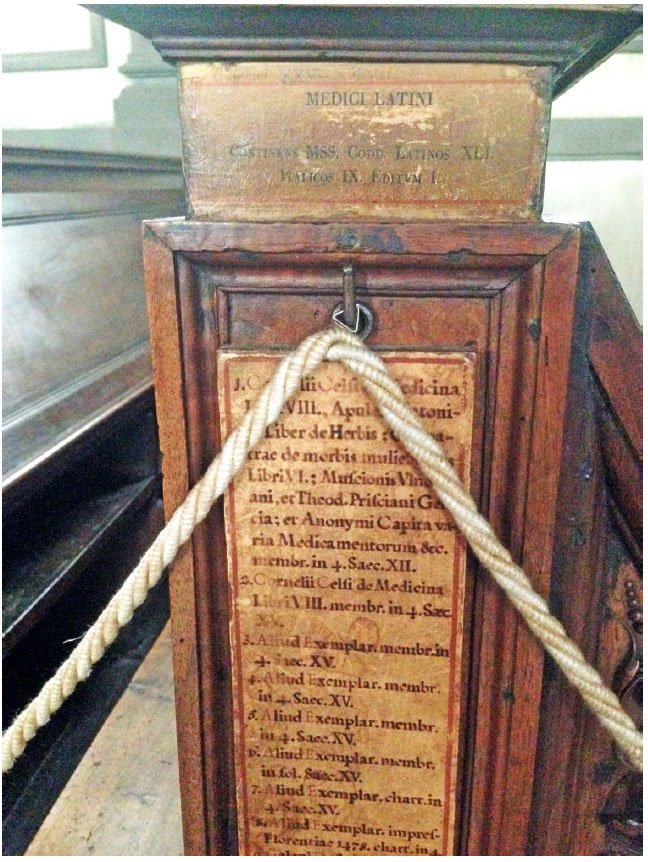 MEDICI LATINI
CONTINENS MSS. CODD. LATINOS XLI.
ITALICOS IX. EDITVM I.
1. Cornelii Celsi Medicina
VIII., Apul
Liber de Herbis;
trae de morbis mulie
Libri VI.; Muscionis
ani, et Theod. Prisciani
cia; et Anonymi Capita va-
ria Medicamentorum &c.
membr. in 4. Saec. XII.
2. Cornelii Celsi de Medicina
Libri VIII. membr. in 4. Saec.
XV.
3. Aliud Exemplar. membr. in
4. Saec. XV.
4. Aliud Exemplar. membr.
in 4. Saec. XV.
5. Aliud Exemplar. membr.
in 4. Saec. XV.
6. Aliud Exemplar. membr.
in fol. Saec. XV.
7. Aliud Exemplar. chart. in
4. Saec. XV.
8. Aliud Exemplar. impres-
Florentiae 1478. chart. in 4.